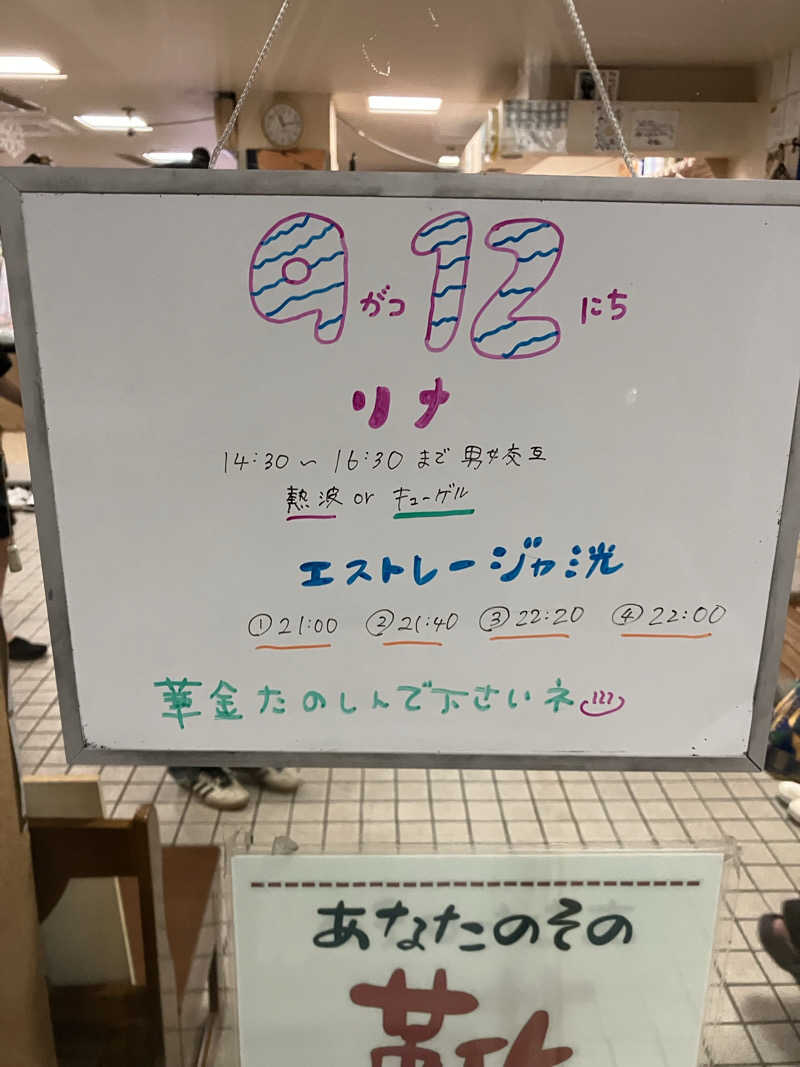 9がつ12にち
リナ
14:30～16:30まで男女交互
熱波 or キューゲル
エストレージャ洸
①21:00 ②21:40 ③22:20 ④22:00
華金たのしんで下さいネ
あなたのその
靴